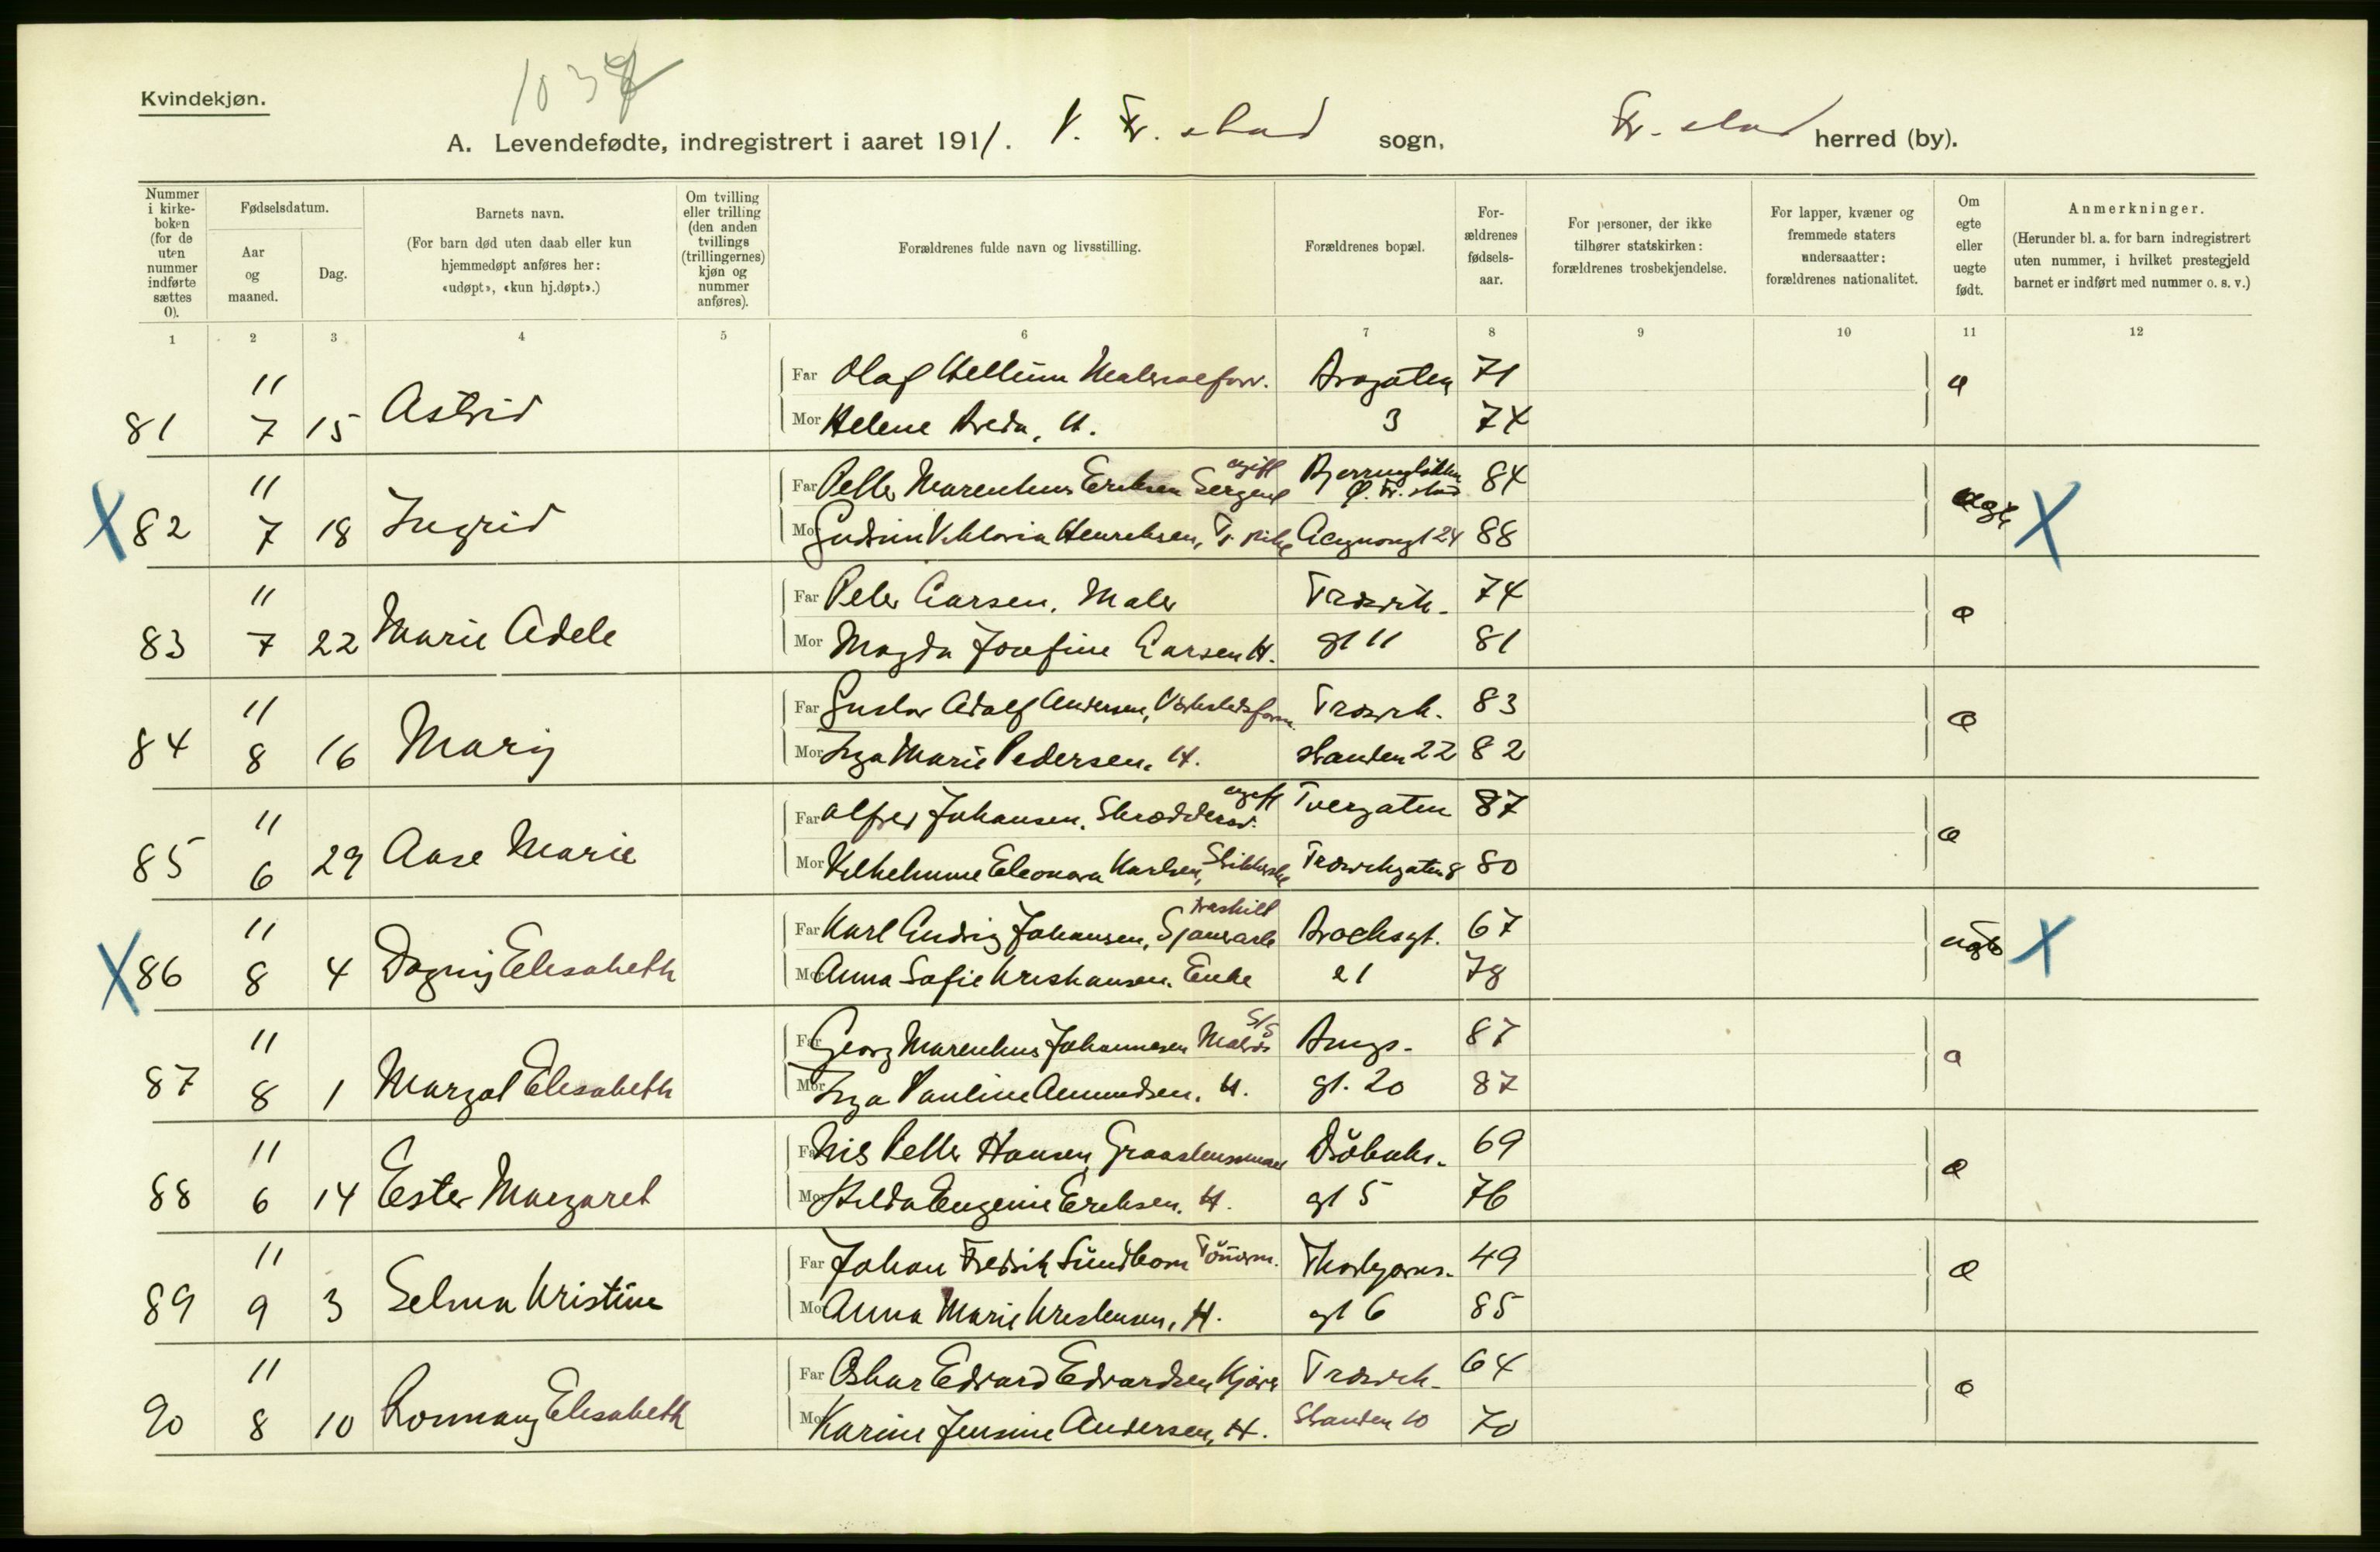 Kvindekjøn.
A. Levendefødte, indregistrert i aaret 1911. V. Fr. stad sogn, Fr. stad herred (by).
Nummer i kirkeboken (for de uten nummer indførte sættes 0).
Fødselsdatum.
Aar og maaned.
Dag.
Barnets navn.
(For barn død uten daab eller kun hjemmedøpt anføres her: «udøpt», «kun hj.døpt».)
Om tvilling eller trilling (den anden tvillings (trillingernes) kjøn og nummer anføres).
Forældrenes fulde navn og livsstilling.
Forældrenes bopæl.
Forældrenes fødselsaar.
For personer, der ikke tilhører statskirken: forældrenes trosbekjendelse.
For lapper, kvæner og fremmede staters undersaatter: forældrenes nationalitet.
Om egte eller uegte født.
Anmerkninger.
(Herunder bl. a. for barn indregistrert uten nummer, i hvilket prestegjeld barnet er indført med nummer o. s. v.)
1 2 3 4 5 6 7 8 9 10 11 12
11 Far Olaf 71
81 7 15 Astrid Mor Helene 3 74
11 Far Marenius Eriksen Sergent ugift Ø. Fr. stad 84 uegte
X 82 7 18 Ingrid Mor Gudrun Viktoria Henriksen, 24 88 X
11 Far Peter Larsen, Maler Trosvik- 74 e
83 7 22 Marie Adele Mor Magda Josefine Larsen H. gt 11 81
11 Far Gustav Adolf Andersen, Trosvik- 83 e
84 8 16 Mary Mor Inga Marie Pedersen, H. stranden 22 82
11 Far Alfred Johansen, ugift Tvergaten 87 e
85 6 29 Aase Marie Mor Vilhelmine Eleonora Karlsen, Trosvikgaten 8 80
11 Far Karl Ludvig Johansen, fraskilt Brochsgt. 67
X 86 8 4 Dagny Elisabeth Mor Anna Sofie Kristiansen, Enke 21 78 X
11 Far Georg Marenius Johannesen Matros 87 e
87 8 1 Margot Elisabeth Mor Inga Pauline Amundsen, H. gt. 20 87
11 Far Nils Petter Hansen, 69 e
88 6 14 Ester Margaret Mor Hilda Eugenie Eriksen, H. gt 5 76
11 Far Johan Fredrik Sundbom Tömerm. 49 e
89 9 3 Selma Kristine Mor Anna Marie Kristensen, H. gt 6 85
11 Far Oskar Edvard Edvardsen Trosvik- 64 e
90 8 10 Elisabeth Mor Karine Jensine Andersen, H. Stranden 10 70